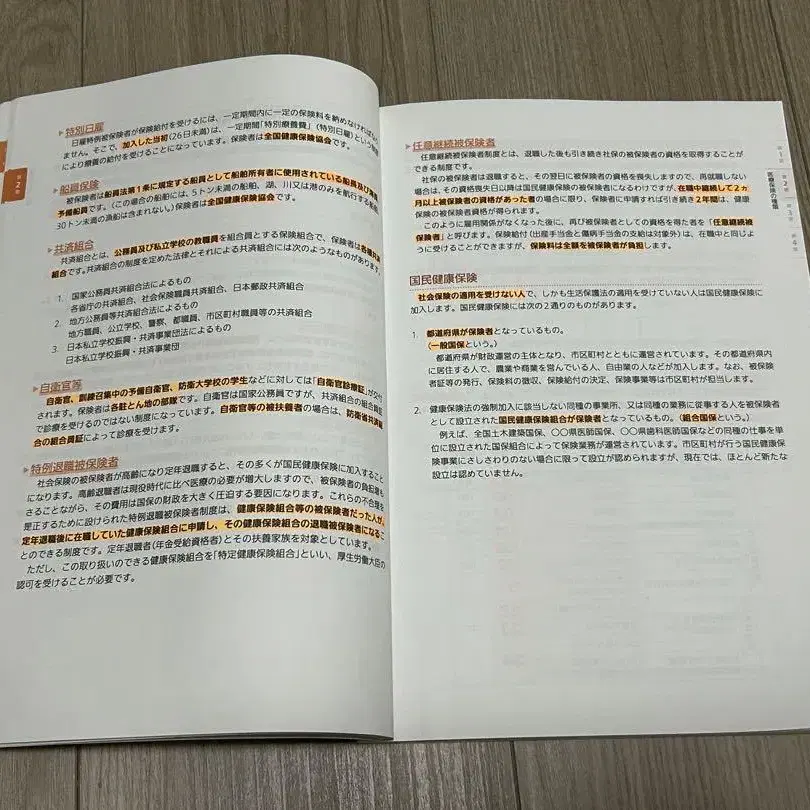 第2章
特別日雇
日雇特例被保険者が保険給付を受けるには、一定期間内に一定の保険料を納めなければなり
ません。そこで、加入した当初(26日未満)は、一定期間「特別療養費」(特別日雇)という
により療養の給付を受けることになっています。保険者は全国健康保険協会です。
船員保険
被保険者は船員法第1条に規定する船員として船舶所有者に使用されている船員及び
予備船員です。(この場合の船舶には、5トン未満の船舶、湖、川又は港のみを航行する船舶、
30トン未満の漁船は含まれない。)保険者は全国健康保険協会です。
共済組合
共済組合とは、公務員及び私立学校の教職員を組合員とする保険組合で、保険者は各種共済
組合です。共済組合の制度を定めた法律とそれによる共済組合には次のようなものがあります。
1. 国家公務員共済組合法によるもの
各省庁の共済組合、社会保険職員共済組合、日本郵政共済組合
2. 地方公務員等共済組合法によるもの
地方職員、公立学校、警察、都職員、市区町村職員等の共済組合
3. 日本私立学校振興・共済事業団法によるもの
日本私立学校振興・共済事業団
自衛官等
自衛官、訓練召集中の予備自衛官、防衛大学校の学生などに対しては「自衛官診療証」が交付
されます。保険者は各駐とん地の部隊です。自衛官は国家公務員ですが、共済組合の組合員証
で診療を受けるのではない制度になっています。自衛官等の被扶養者の場合は、防衛省共済組
合の組合員証によって診療を受けます。
特例退職被保険者
社会保険の被保険者が高齢になり定年退職すると、その多くが国民健康保険に加入すること
になります。高齢退職者は現役時代に比べ医療の必要が増大しますので、被保険者の負担増も
さることながら、その費用は国保の財政を大きく圧迫する要因になります。これらの不合理を
是正するために設けられた特例退職被保険者制度は、健康保険組合等の被保険者だった人が、
定年退職後に在職していた健康保険組合に申請し、その健康保険組合の退職被保険者になるこ
とのできる制度です。定年退職者(年金受給資格者)とその扶養家族を対象としています。
ただし、この取り扱いのできる健康保険組合を「特定健康保険組合」といい、厚生労働大臣の
認可を受けることが必要です。
任意継続被保険者
任意継続被保険者制度とは、退職した後も引き続き社保の被保険者の資格を取得することが
できる制度です。
社保の被保険者は退職すると、その翌日に被保険者の資格を喪失しますので、再就職しない
場合は、その資格喪失日以降は国民健康保険の被保険者になるわけですが、在職中継続して2ヵ
月以上被保険者の資格があった者の場合に限り、保険者に申請すれば引き続き2年間は、健康
保険の被保険者資格が得られます。
このように雇用関係がなくなった後に、再び被保険者としての資格を得た者を「任意継続被
保険者」と呼びます。保険給付(出産手当金と傷病手当金の支給は対象外)は、在職中と同じよ
うに受けることができますが、保険料は全額を被保険者が負担します。
国民健康保険
社会保険の適用を受けない人で、しかも生活保護法の適用を受けていない人は国民健康保険に
加入します。国民健康保険には次の2通りのものがあります。
1. 都道府県が保険者となっているもの。
(一般国保という。)
都道府県が財政運営の主体となり、市区町村とともに運営されています。その都道府県内
に居住する人で、農業や商業を営んでいる人、自由業の人などが加入します。なお、被保険
者証等の発行、保険料の徴収、保険給付の決定、保険事業等は市区町村が担当します。
2. 健康保険法の強制加入に該当しない同種の事業所、又は同種の業務に従事する人を被保険者
として設立された国民健康保険組合が保険者となっているもの。(組合国保という。)
例えば、全国土木建築国保、〇〇県医師国保、〇〇県歯科医師国保などの同種の仕事を単
位に設立された国保組合によって保険業務が運営されています。市区町村が行う国民健康保
険事業にさしさわりのない場合に限って設立が認められますが、現在では、ほとんど新たな
設立は認めていません。
第1章
第2章
医療保険の種類
第3章
第4章